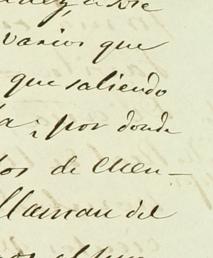 varios que
que saliendo
por donde
os de Cuen-
llaman del